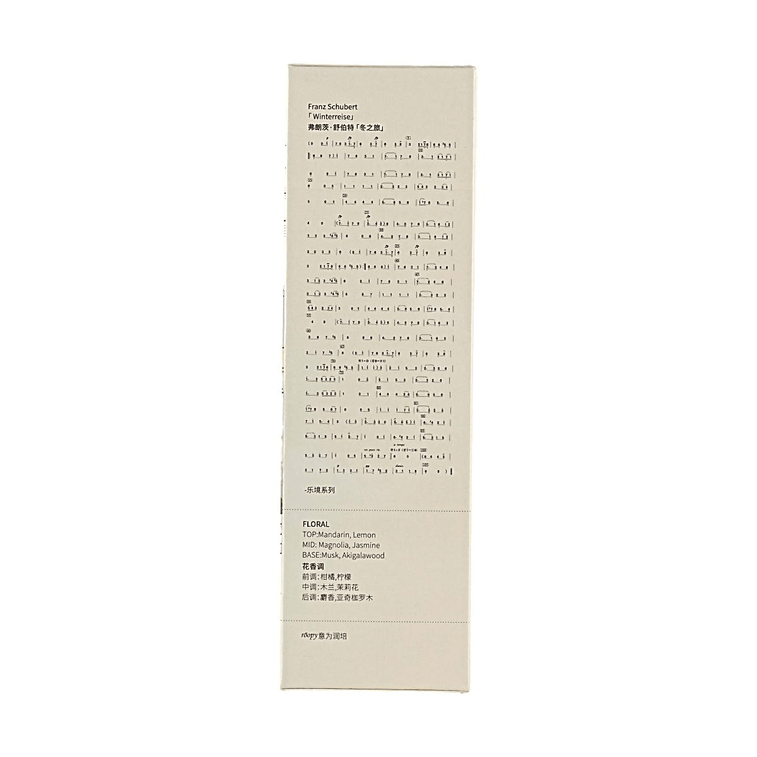 Franz Schubert
「Winterreise」
弗朗茨·舒伯特「冬之旅」
-乐境系列
FLORAL
TOP:Mandarin, Lemon
MID: Magnolia, Jasmine
BASE:Musk, Akigalawood
花香调
前调:柑橘,柠檬
中调:木兰,茉莉花
后调:麝香,亚奇枷罗木
rōopy意为润培